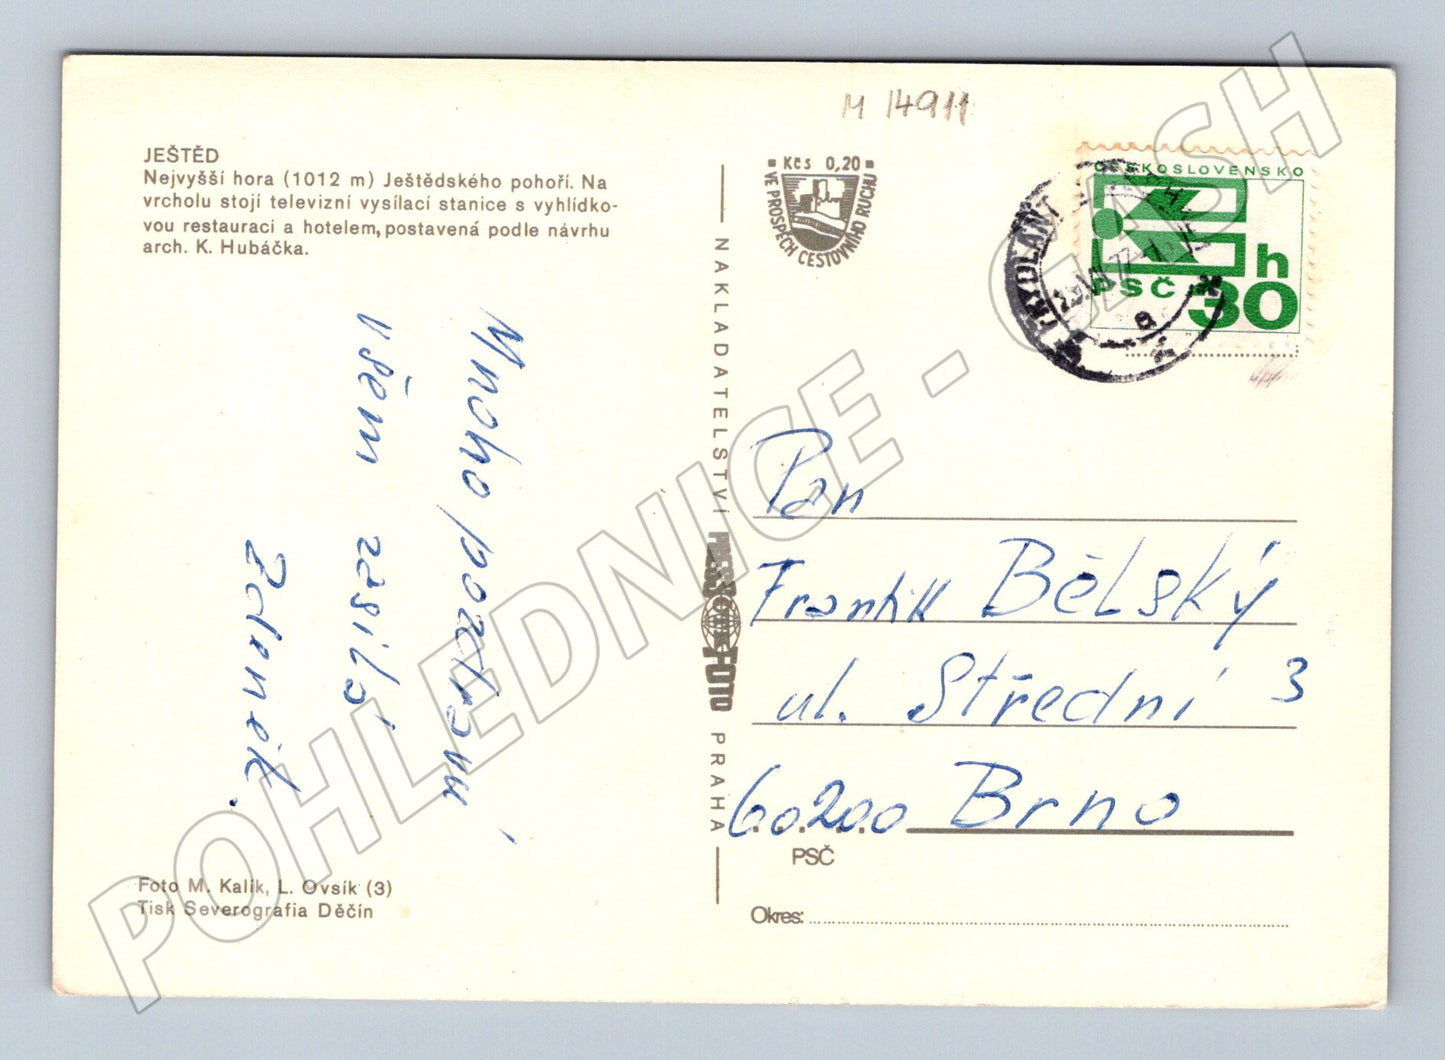 M 14911
JEŠTĚD
Nejvyšší hora (1012 m) Ještědského pohoří. Na
vrcholu stojí televizní vysílací stanice s vyhlídko-
vou restaurací a hotelem, postavená podle návrhu
arch. K. Hubáčka.
Mnoho pozdravů
všem zasílá
Zdeněk.
Foto M. Kalík, L. Ovsík (3)
Tisk Severografia Děčín
NAKLADATELSTVÍ PRESSFOTO PRAHA
Kčs 0,20
VE PROSPĚCH CESTOVNÍHO RUCHU
ČESKOSLOVENSKO
PSČ
h
30
FRÝDLANT
77
a
Pan
Frantik Bělský
ul. Střední 3
60200 Brno
PSČ
Okres:
POHLEDNICE - CASH